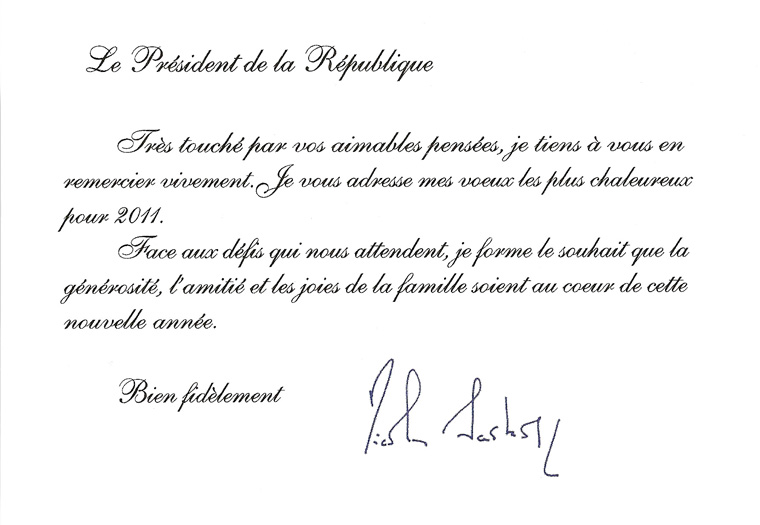 Le Président de la République
Très touché par vos aimables pensées, je tiens à vous en
remercier vivement. Je vous adresse mes voeux les plus chaleureux
pour 2011.
Face aux défis qui nous attendent, je forme le souhait que la
générosité, l'amitié et les joies de la famille soient au coeur de cette
nouvelle année.
Bien fidèlement